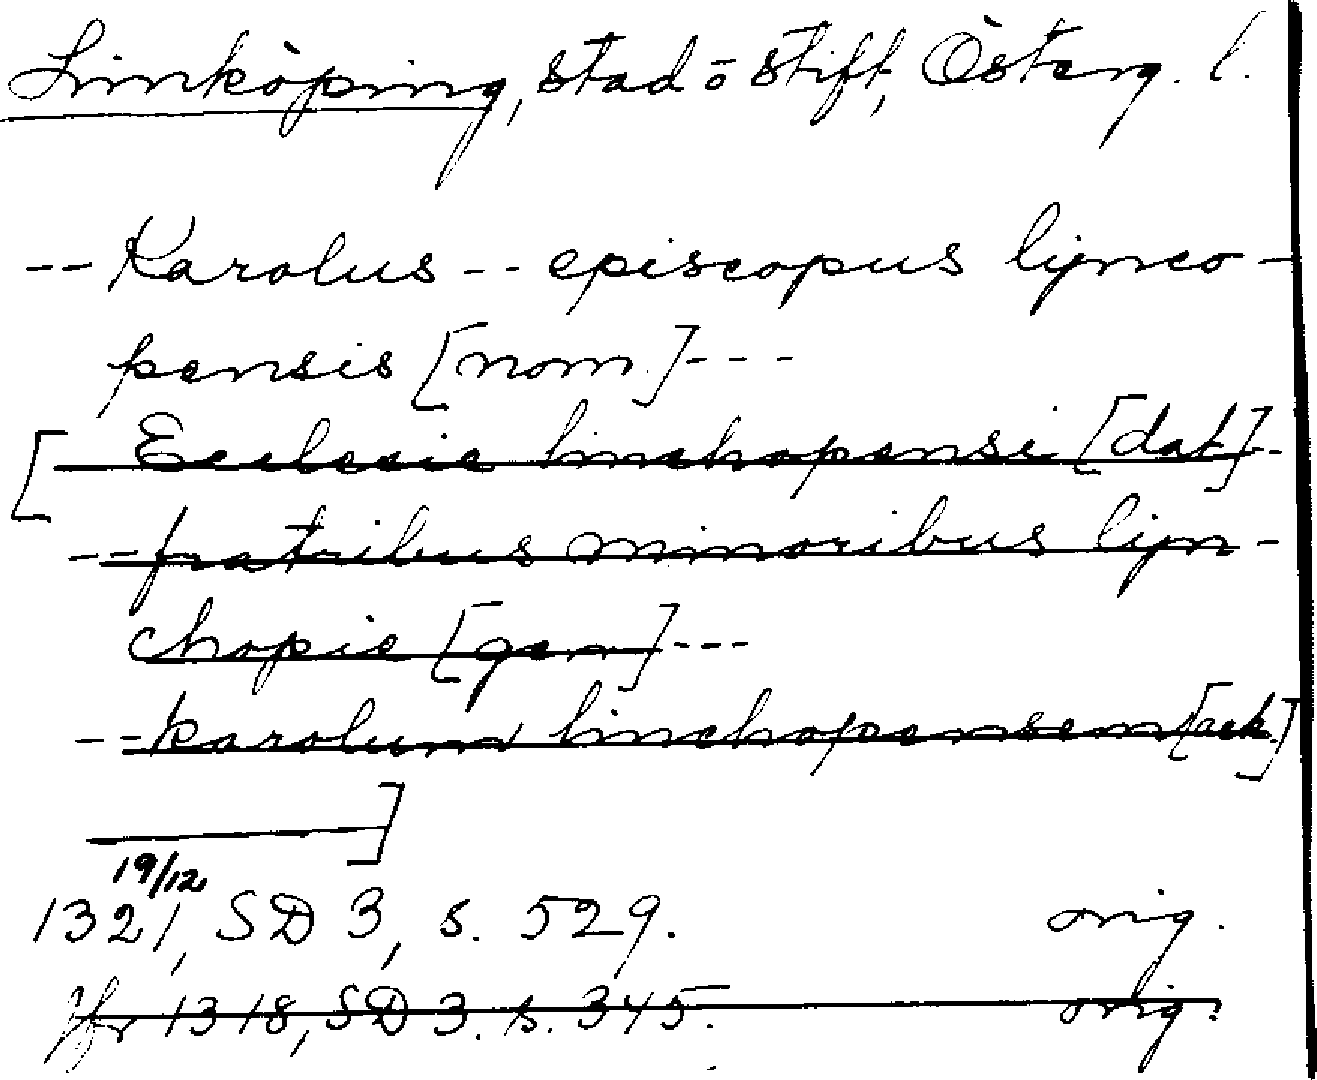 Linköping, stad o stift, Österg. l.
-- Karolus -- episcopus lijnco-
pensis [nom.]---
[ Ecclesie linchopensi [dat]--
-- fratribus minoribus lijn-
chopie [gen]---
-- karolum linchopensem [ack.]
]
19/12
1321, SD 3, s. 529. orig.
Jfr 1318, SD 3. s. 345. orig.